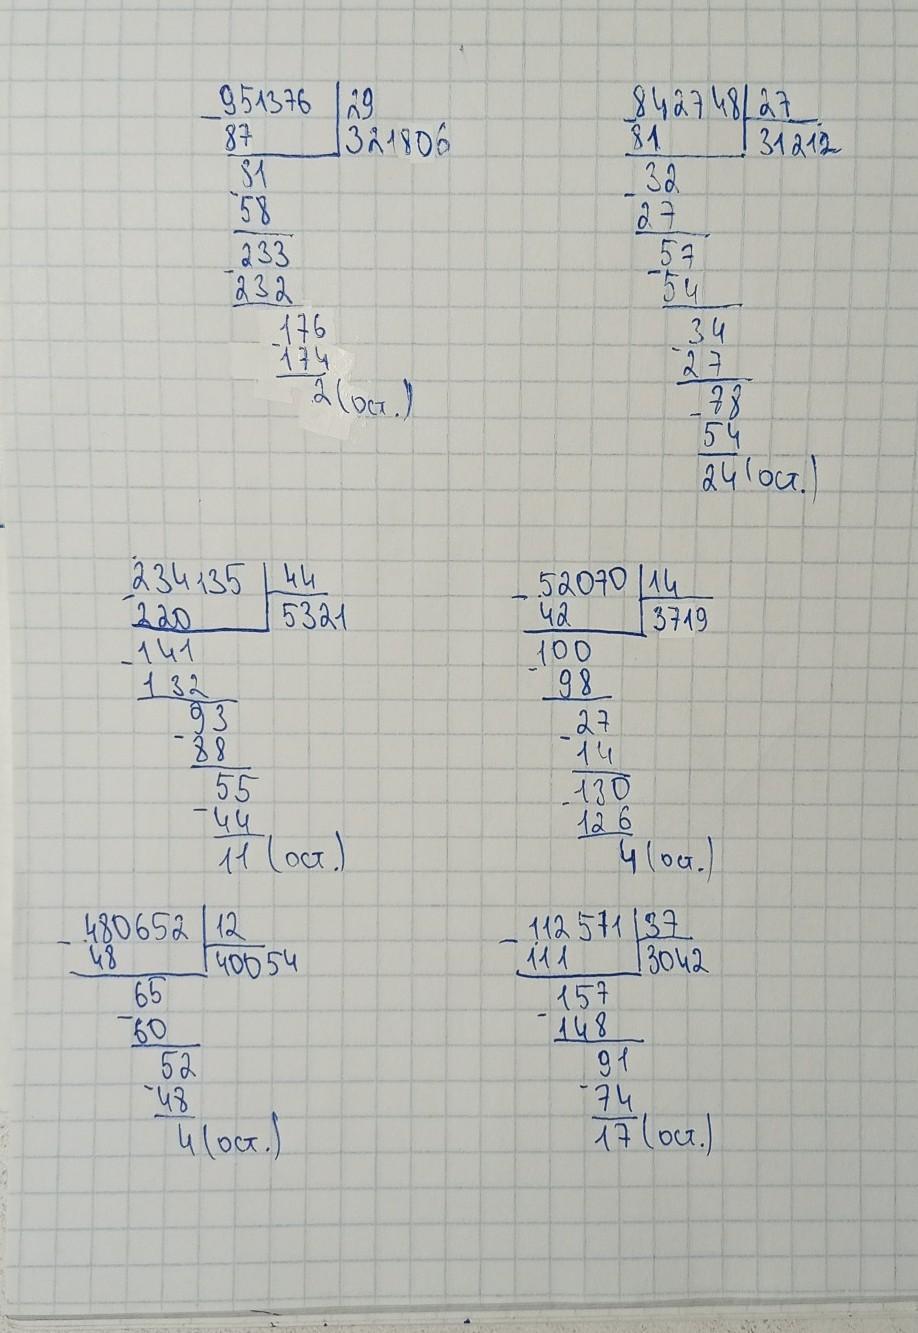 951376 29
87 321806
81
58
233
232
176
174
2 (ост.)
842748 27
81 31212
32
27
57
54
34
27
78
54
24 (ост.)
234135 44
220 5321
141
132
93
88
55
44
11 (ост.)
52070 14
42 3719
100
98
27
14
130
126
4 (ост.)
480652 12
48 40054
65
60
52
48
4 (ост.)
112571 37
111 3042
157
148
91
74
17 (ост.)